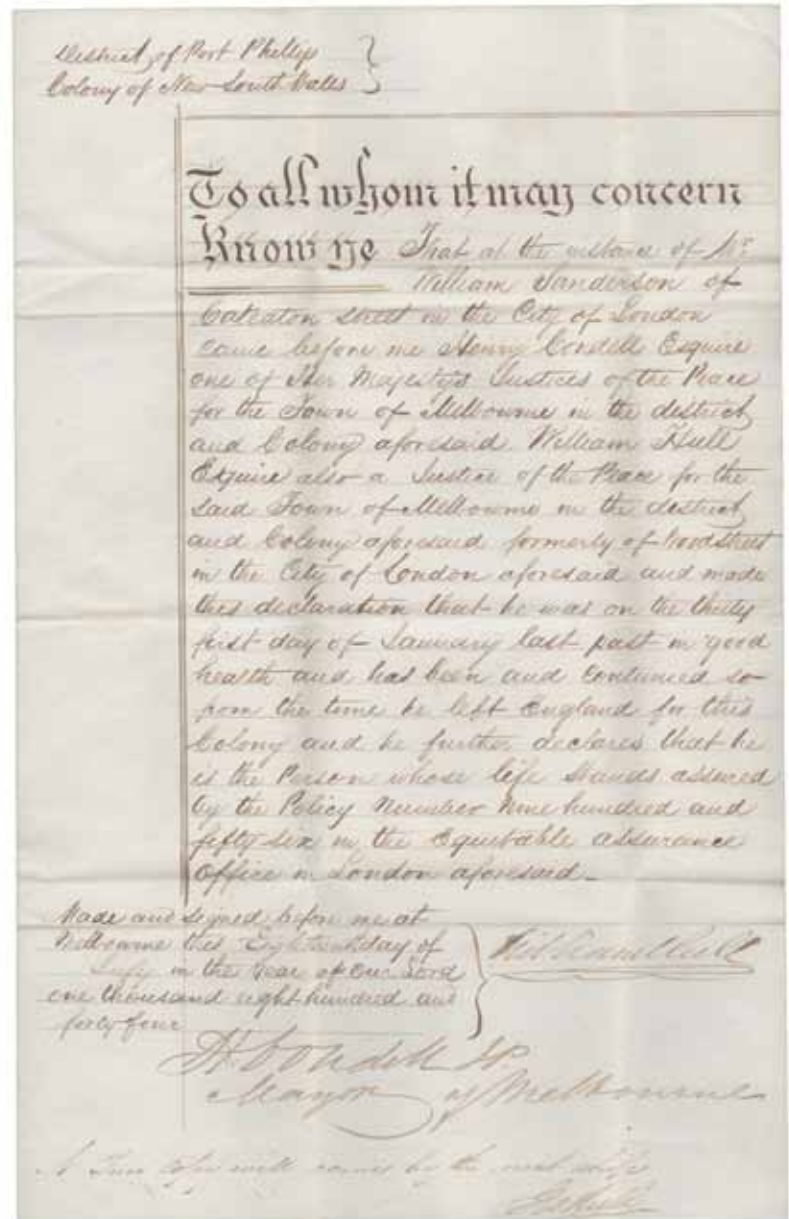 District of Port Phillip
Colony of New South Wales
To all whom it may concern
Know ye That at the instance of Mr
William Sanderson of
Cateaton street in the City of London
came before me Henry Condell Esquire
one of Her Majestys Justices of the Peace
for the Town of Melbourne in the district
and Colony aforesaid William Hull
Esquire also a Justice of the Peace for the
said Town of Melbourne in the district
and Colony aforesaid formerly of Woodstreet
in the City of London aforesaid and made
this declaration that he was on the thirty
first day of January last past in good
health and has been and continued so
from the time he left England for this
Colony and he further declares that he
is the Person whose life stands assured
by the Policy Number Nine hundred and
fifty six in the Equitable assurance
Office in London aforesaid_
Made and signed before me at
Melbourne this day of
July in the Year of Our Lord
one thousand eight hundred and
forty four
William Hull
H Condell JP
Mayor of Melbourne
A True Copy will by the next ship